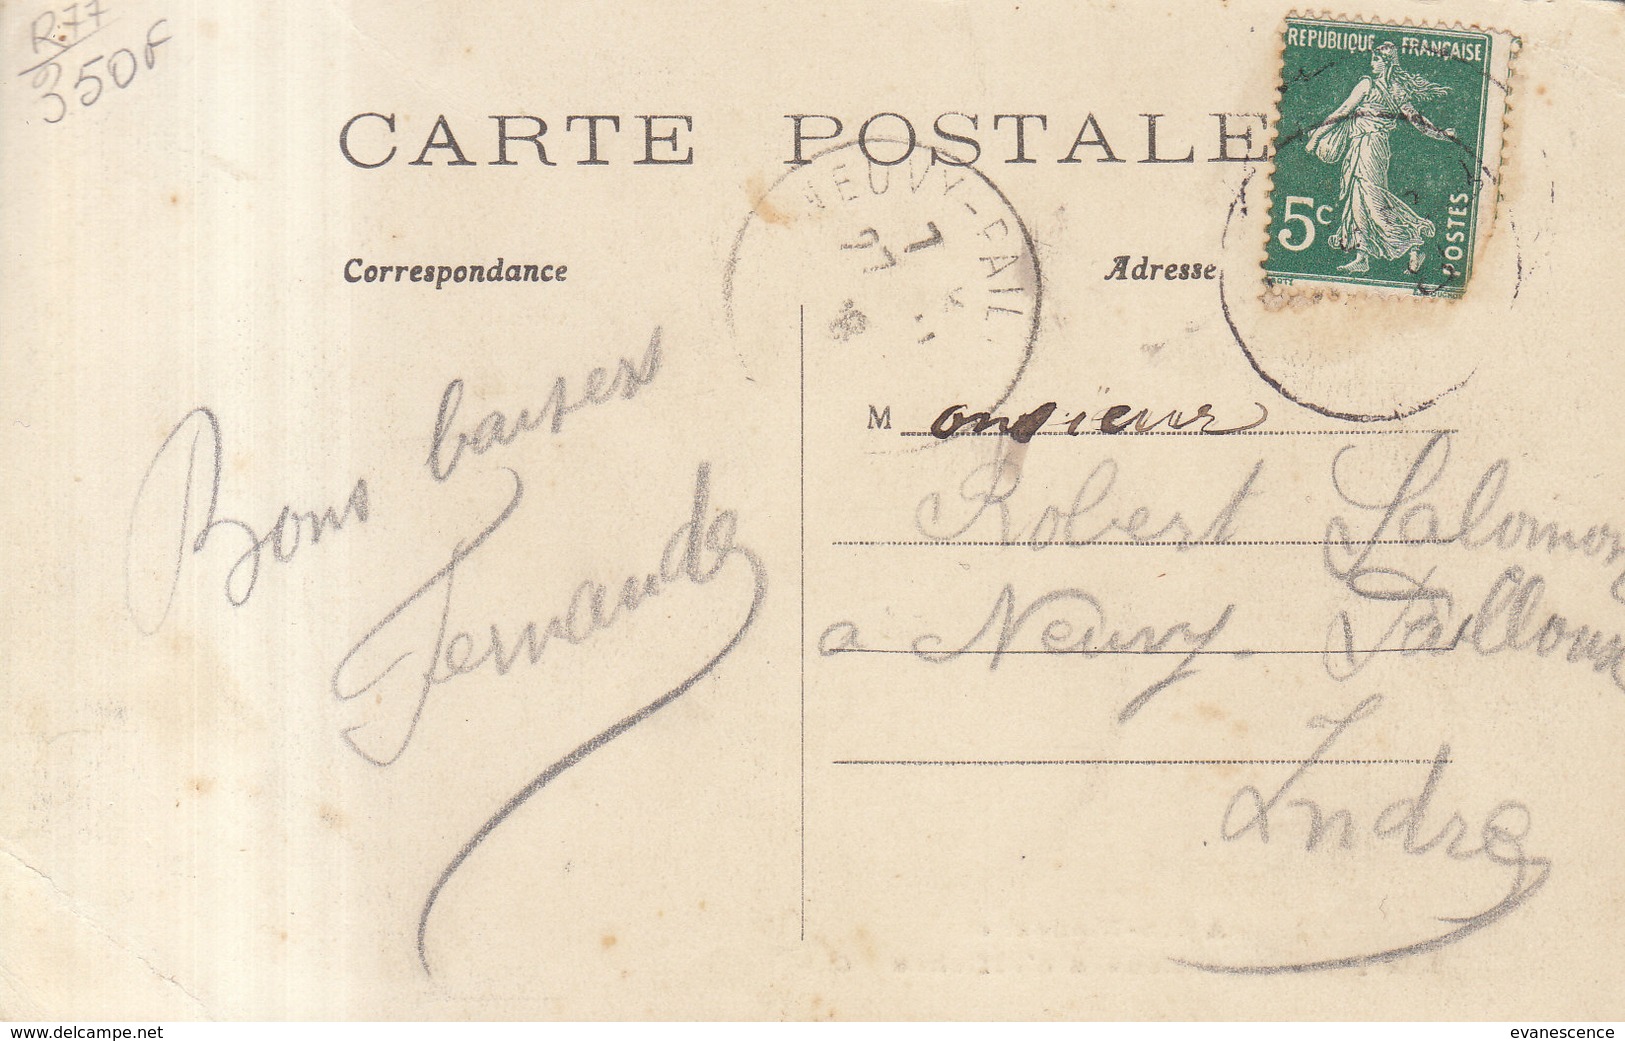 R.77
350F
CARTE POSTALE
REPUBLIQUE FRANÇAISE
5c
POSTES
NEUVY-PAIL
Correspondance
Adresse
Bons baisers
Fernande
Monsieur
Robert Salomon
a Neuvy. Pailloux
Indre
www.delcampe.net
evanescence